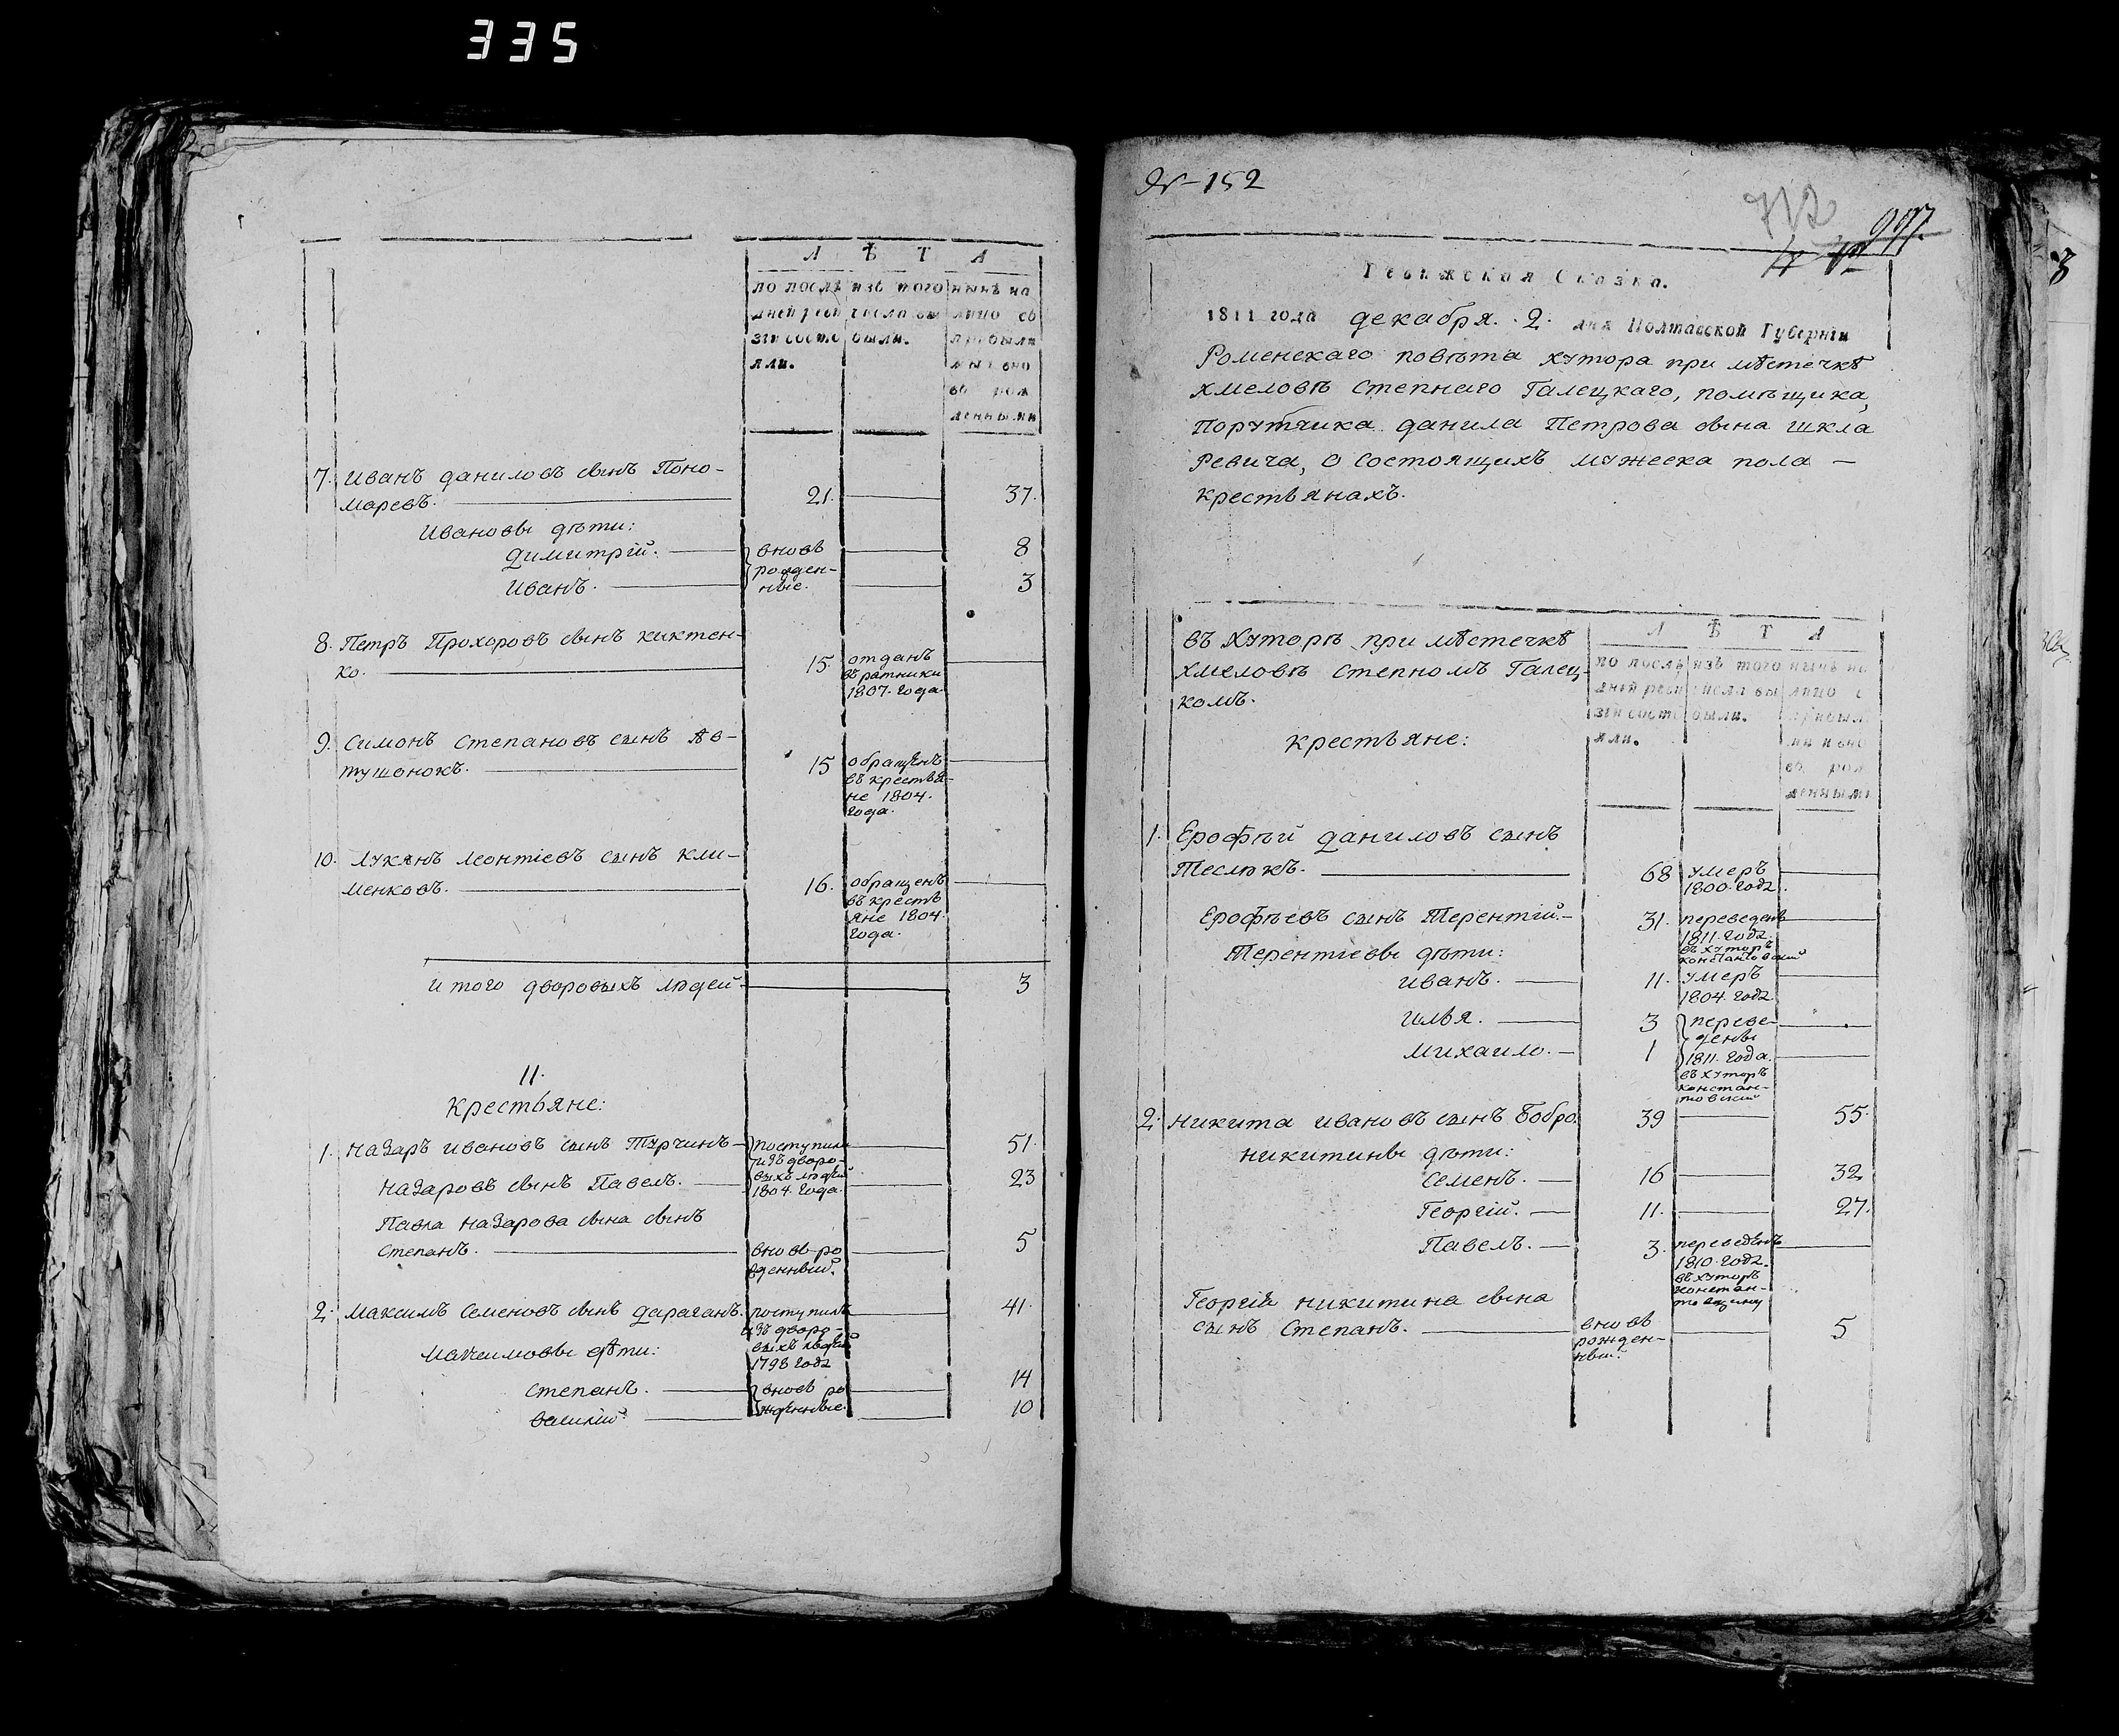 335
Л Ѣ Т А
по послѣ изъ того нынѣ на
дней реви числа вы лицо съ
зіи состо были. прибылы
яли. ми и вно
въ рож
денными
7. Иванъ Даниловъ сынъ Поно-
маревъ. 21. 37.
Ивановы дѣти:
Димитрій. вновь 8
рожден-
Иванъ. ные. 3
8. Петръ Прохоровъ сынъ Киктен-
ко. 15 отданъ
въ ратники
1807. года.
9. Симонъ Степановъ сынъ Ав-
тушонокъ. 15 обращенъ
въ крестья-
не 1804.
года.
10. Лукянъ Леонтіевъ сынъ Кли-
менковъ. 16. обращенъ
въ кресть
яне 1804.
года.
итого дворовыхъ людей. 3
II.
Крестьяне:
1. Назаръ Ивановъ сынъ Турчинъ поступили 51.
изъ дворо-
Назаровъ сынъ Павелъ. выхъ людей 23
1804. года.
Павла Назарова сына сынъ
Степанъ. вновь ро 5
жденный.
2. Максимъ Семеновъ сынъ Дараганъ. поступилъ 41.
изъ дворо-
Максимовы дѣти: выхъ людей
1798 года
Степанъ. вновь ро 14
Василій. жденные. 10
№ 152
712
Ревижская Сказка.
1811 года декабря. 2. дня Полтавской Губерніи
Роменскаго повѣта хутора при мѣстечкѣ
Хмеловѣ степнаго Галецкаго, помѣщика,
Порутчика Данила Петрова сына Шкля
ревича, о состоящихъ мужеска пола —
крестьянахъ.
въ Хуторѣ при мѣстечкѣ Л Ѣ Т А
Хмеловѣ степномъ Галец-
комъ.
по послѣ изъ того нынѣ на
дней реви числа вы лицо с
зіи состо были. прибыл
яли. ми и вно
въ рож
денными
Крестьяне:
1. Ерофѣй Даниловъ сынъ
Теслюкъ. 68 умеръ
1800. года.
Ерофѣевъ сынъ Терентій. 31. переведенъ
1811. года.
въ хуторъ
Константовский
Терентіевы дѣти:
Иванъ. 11. умеръ
1804. года
Илья. 3 переве-
дены
Михаило. 1 1811. года.
въ хуторъ
Констан-
товский
2. Никита Ивановъ сынъ Бобро. 39 55.
Никитины дѣти:
Семенъ. 16 32
Георгій. 11. 27.
Павелъ. 3. переведенъ
1810. года.
въ хуторъ
Констан-
Георгія Никитина сына
сынъ Степанъ. вновь 5
рожден-
ный.
3